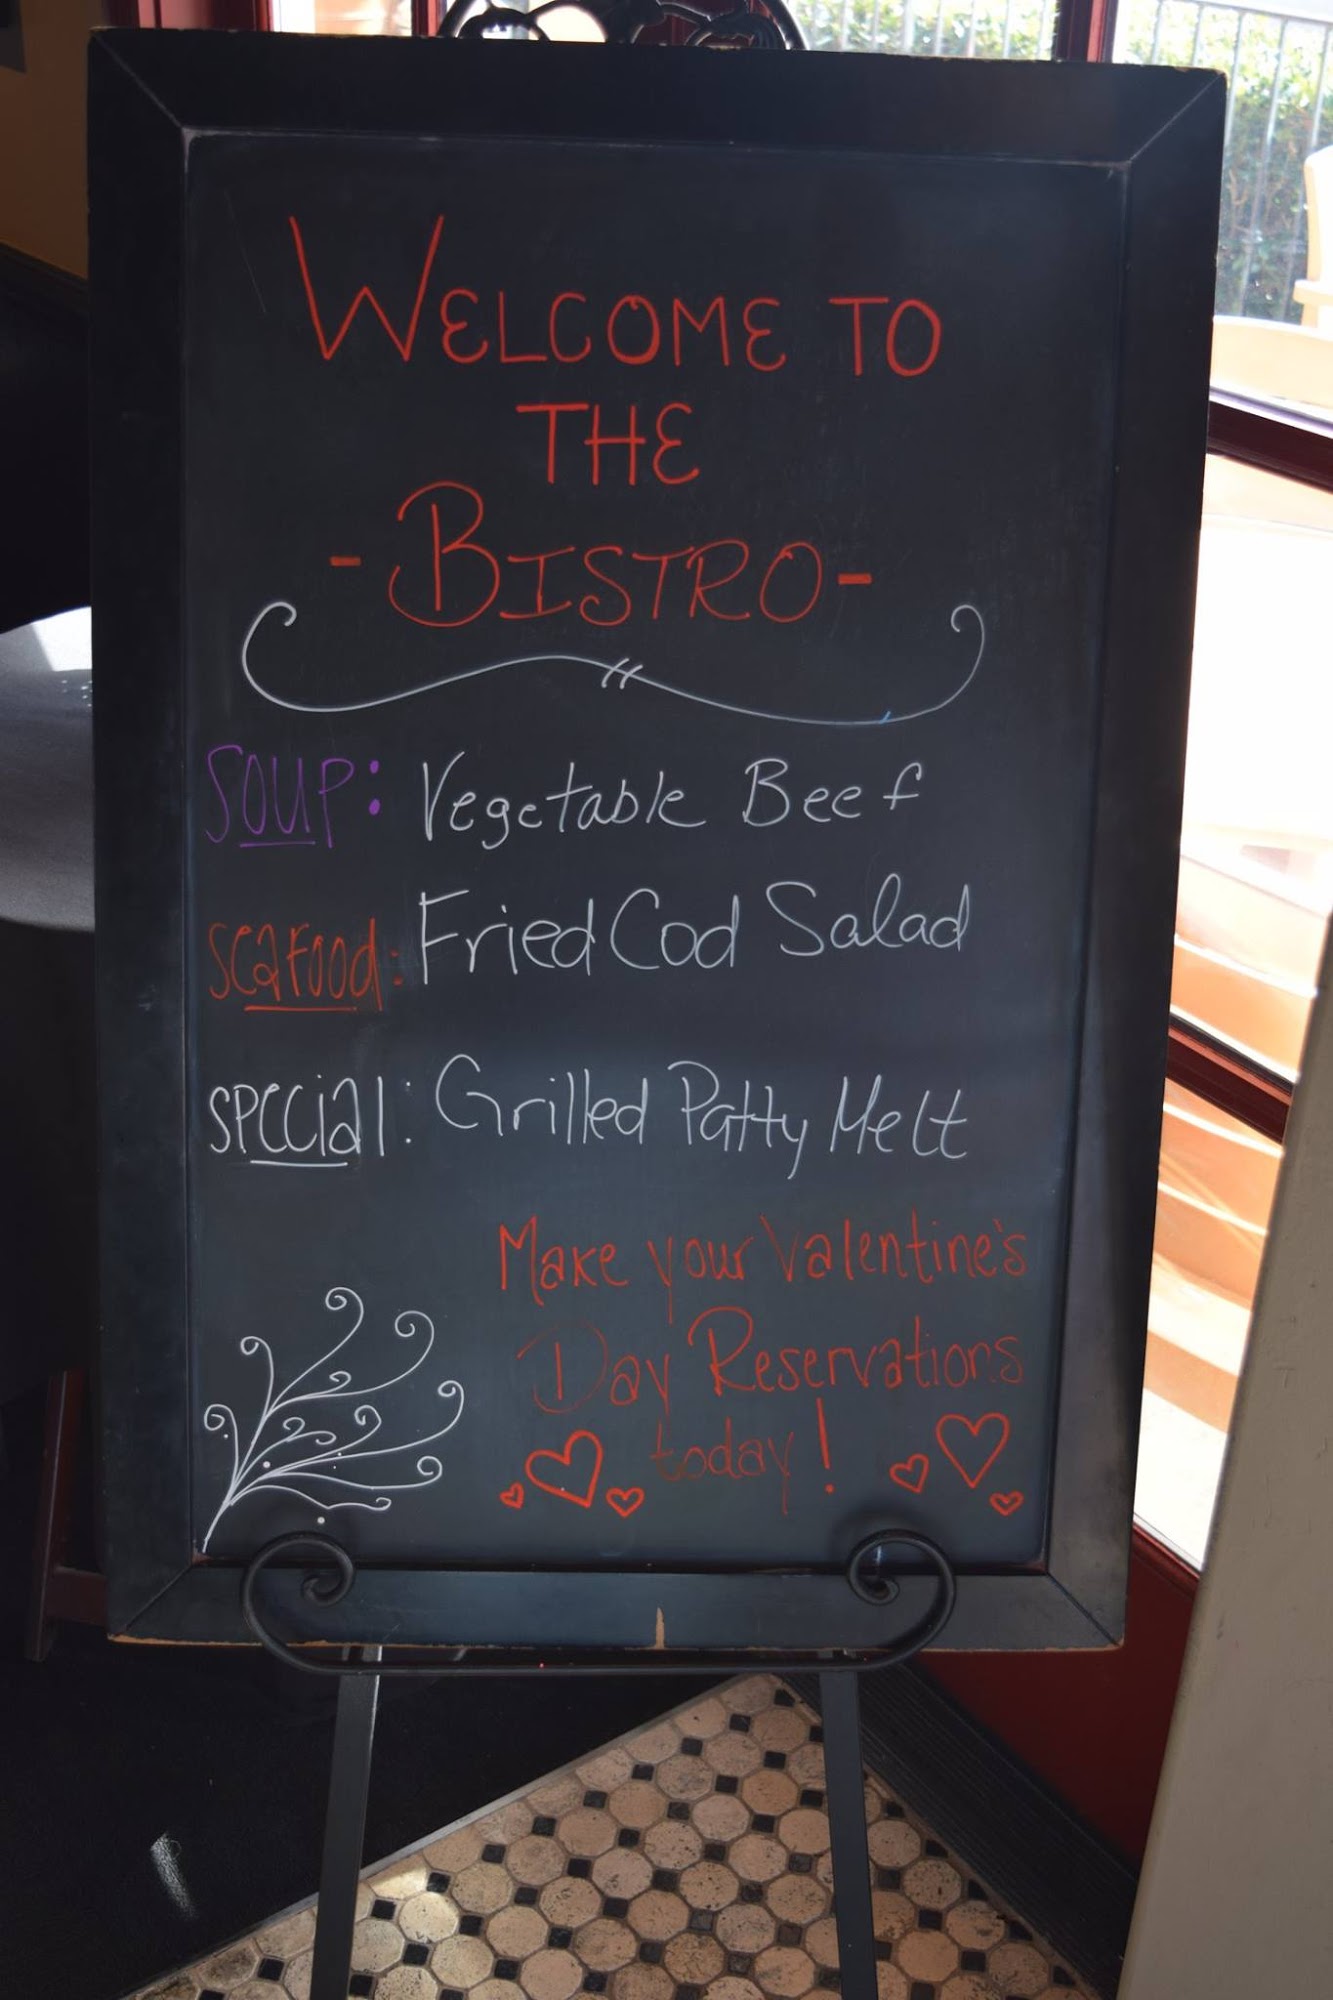 WELCOME TO
THE
- BISTRO -
SOUP: Vegetable Beef
SEAFOOD: Fried Cod Salad
SPECIAL: Grilled Patty Melt
Make your Valentine's
Day Reservations
today!